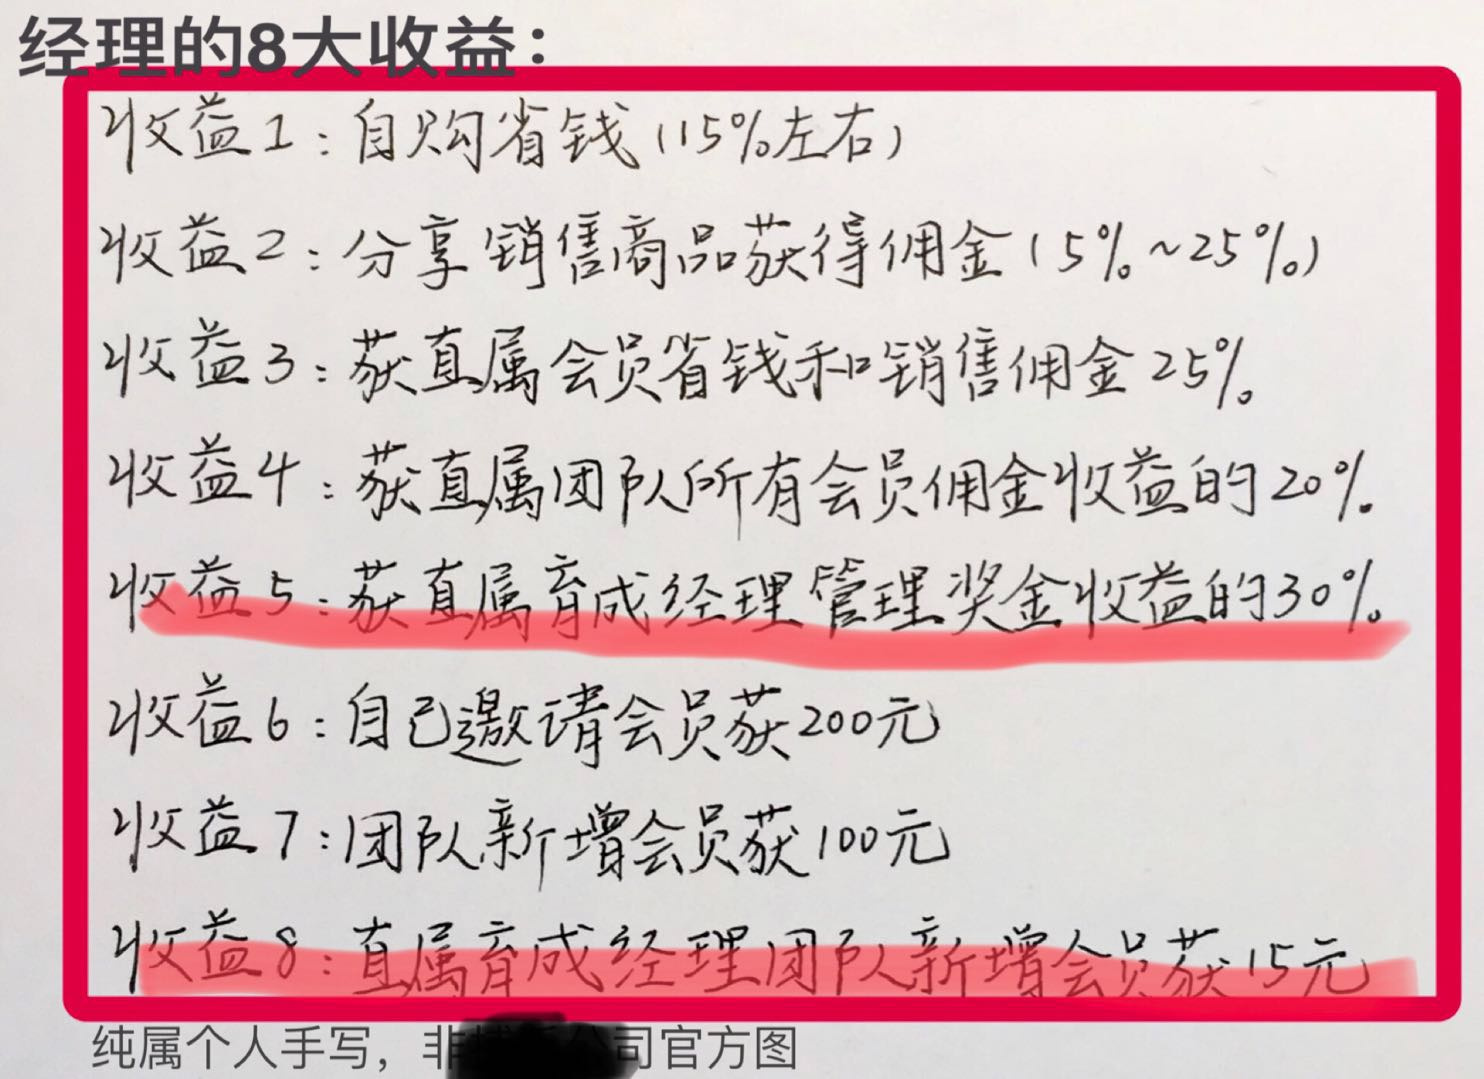 经理的8大收益：
收益1：自购省钱（15%左右）
收益2：分享销售商品获得佣金（5%~25%）
收益3：获直属会员省钱和销售佣金25%
收益4：获直属团队所有会员佣金收益的20%
收益5：获直属育成经理管理奖金收益的30%
收益6：自己邀请会员获200元
收益7：团队新增会员获100元
收益8：直属育成经理团队新增会员获15元
纯属个人手写，非公司官方图